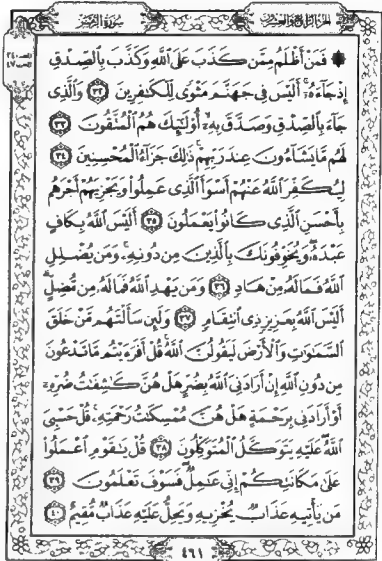 الجزء الرابع والعشرون سورة الزمر
۞ فَمَنْ أَظْلَمُ مِمَّن كَذَبَ عَلَى ٱللَّهِ وَكَذَّبَ بِٱلصِّدْقِ
إِذْ جَآءَهُۥٓ ۚ أَلَيْسَ فِى جَهَنَّمَ مَثْوًى لِّلْكَٰفِرِينَ ٣٢ وَٱلَّذِى
جَآءَ بِٱلصِّدْقِ وَصَدَّقَ بِهِۦٓ ۙ أُو۟لَٰٓئِكَ هُمُ ٱلْمُتَّقُونَ ٣٣
لَهُم مَّا يَشَآءُونَ عِندَ رَبِّهِمْ ۚ ذَٰلِكَ جَزَآءُ ٱلْمُحْسِنِينَ ٣٤
لِيُكَفِّرَ ٱللَّهُ عَنْهُمْ أَسْوَأَ ٱلَّذِى عَمِلُوا۟ وَيَجْزِيَهُمْ أَجْرَهُم
بِأَحْسَنِ ٱلَّذِى كَانُوا۟ يَعْمَلُونَ ٣٥ أَلَيْسَ ٱللَّهُ بِكَافٍ
عَبْدَهُۥ ۖ وَيُخَوِّفُونَكَ بِٱلَّذِينَ مِن دُونِهِۦ ۚ وَمَن يُضْلِلِ
ٱللَّهُ فَمَا لَهُۥ مِنْ هَادٍ ٣٦ وَمَن يَهْدِ ٱللَّهُ فَمَا لَهُۥ مِن مُّضِلٍّ ۗ
أَلَيْسَ ٱللَّهُ بِعَزِيزٍ ذِى ٱنتِقَامٍ ٣٧ وَلَئِن سَأَلْتَهُم مَّنْ خَلَقَ
ٱلسَّمَٰوَٰتِ وَٱلْأَرْضَ لَيَقُولُنَّ ٱللَّهُ ۚ قُلْ أَفَرَءَيْتُم مَّا تَدْعُونَ
مِن دُونِ ٱللَّهِ إِنْ أَرَادَنِىَ ٱللَّهُ بِضُرٍّ هَلْ هُنَّ كَٰشِفَٰتُ ضُرِّهِۦٓ
أَوْ أَرَادَنِى بِرَحْمَةٍ هَلْ هُنَّ مُمْسِكَٰتُ رَحْمَتِهِۦ ۚ قُلْ حَسْبِىَ
ٱللَّهُ ۖ عَلَيْهِ يَتَوَكَّلُ ٱلْمُتَوَكِّلُونَ ٣٨ قُلْ يَٰقَوْمِ ٱعْمَلُوا۟
عَلَىٰ مَكَانَتِكُمْ إِنِّى عَٰمِلٌ ۖ فَسَوْفَ تَعْلَمُونَ ٣٩
مَن يَأْتِيهِ عَذَابٌ يُخْزِيهِ وَيَحِلُّ عَلَيْهِ عَذَابٌ مُّقِيمٌ ٤٠
٤٦١